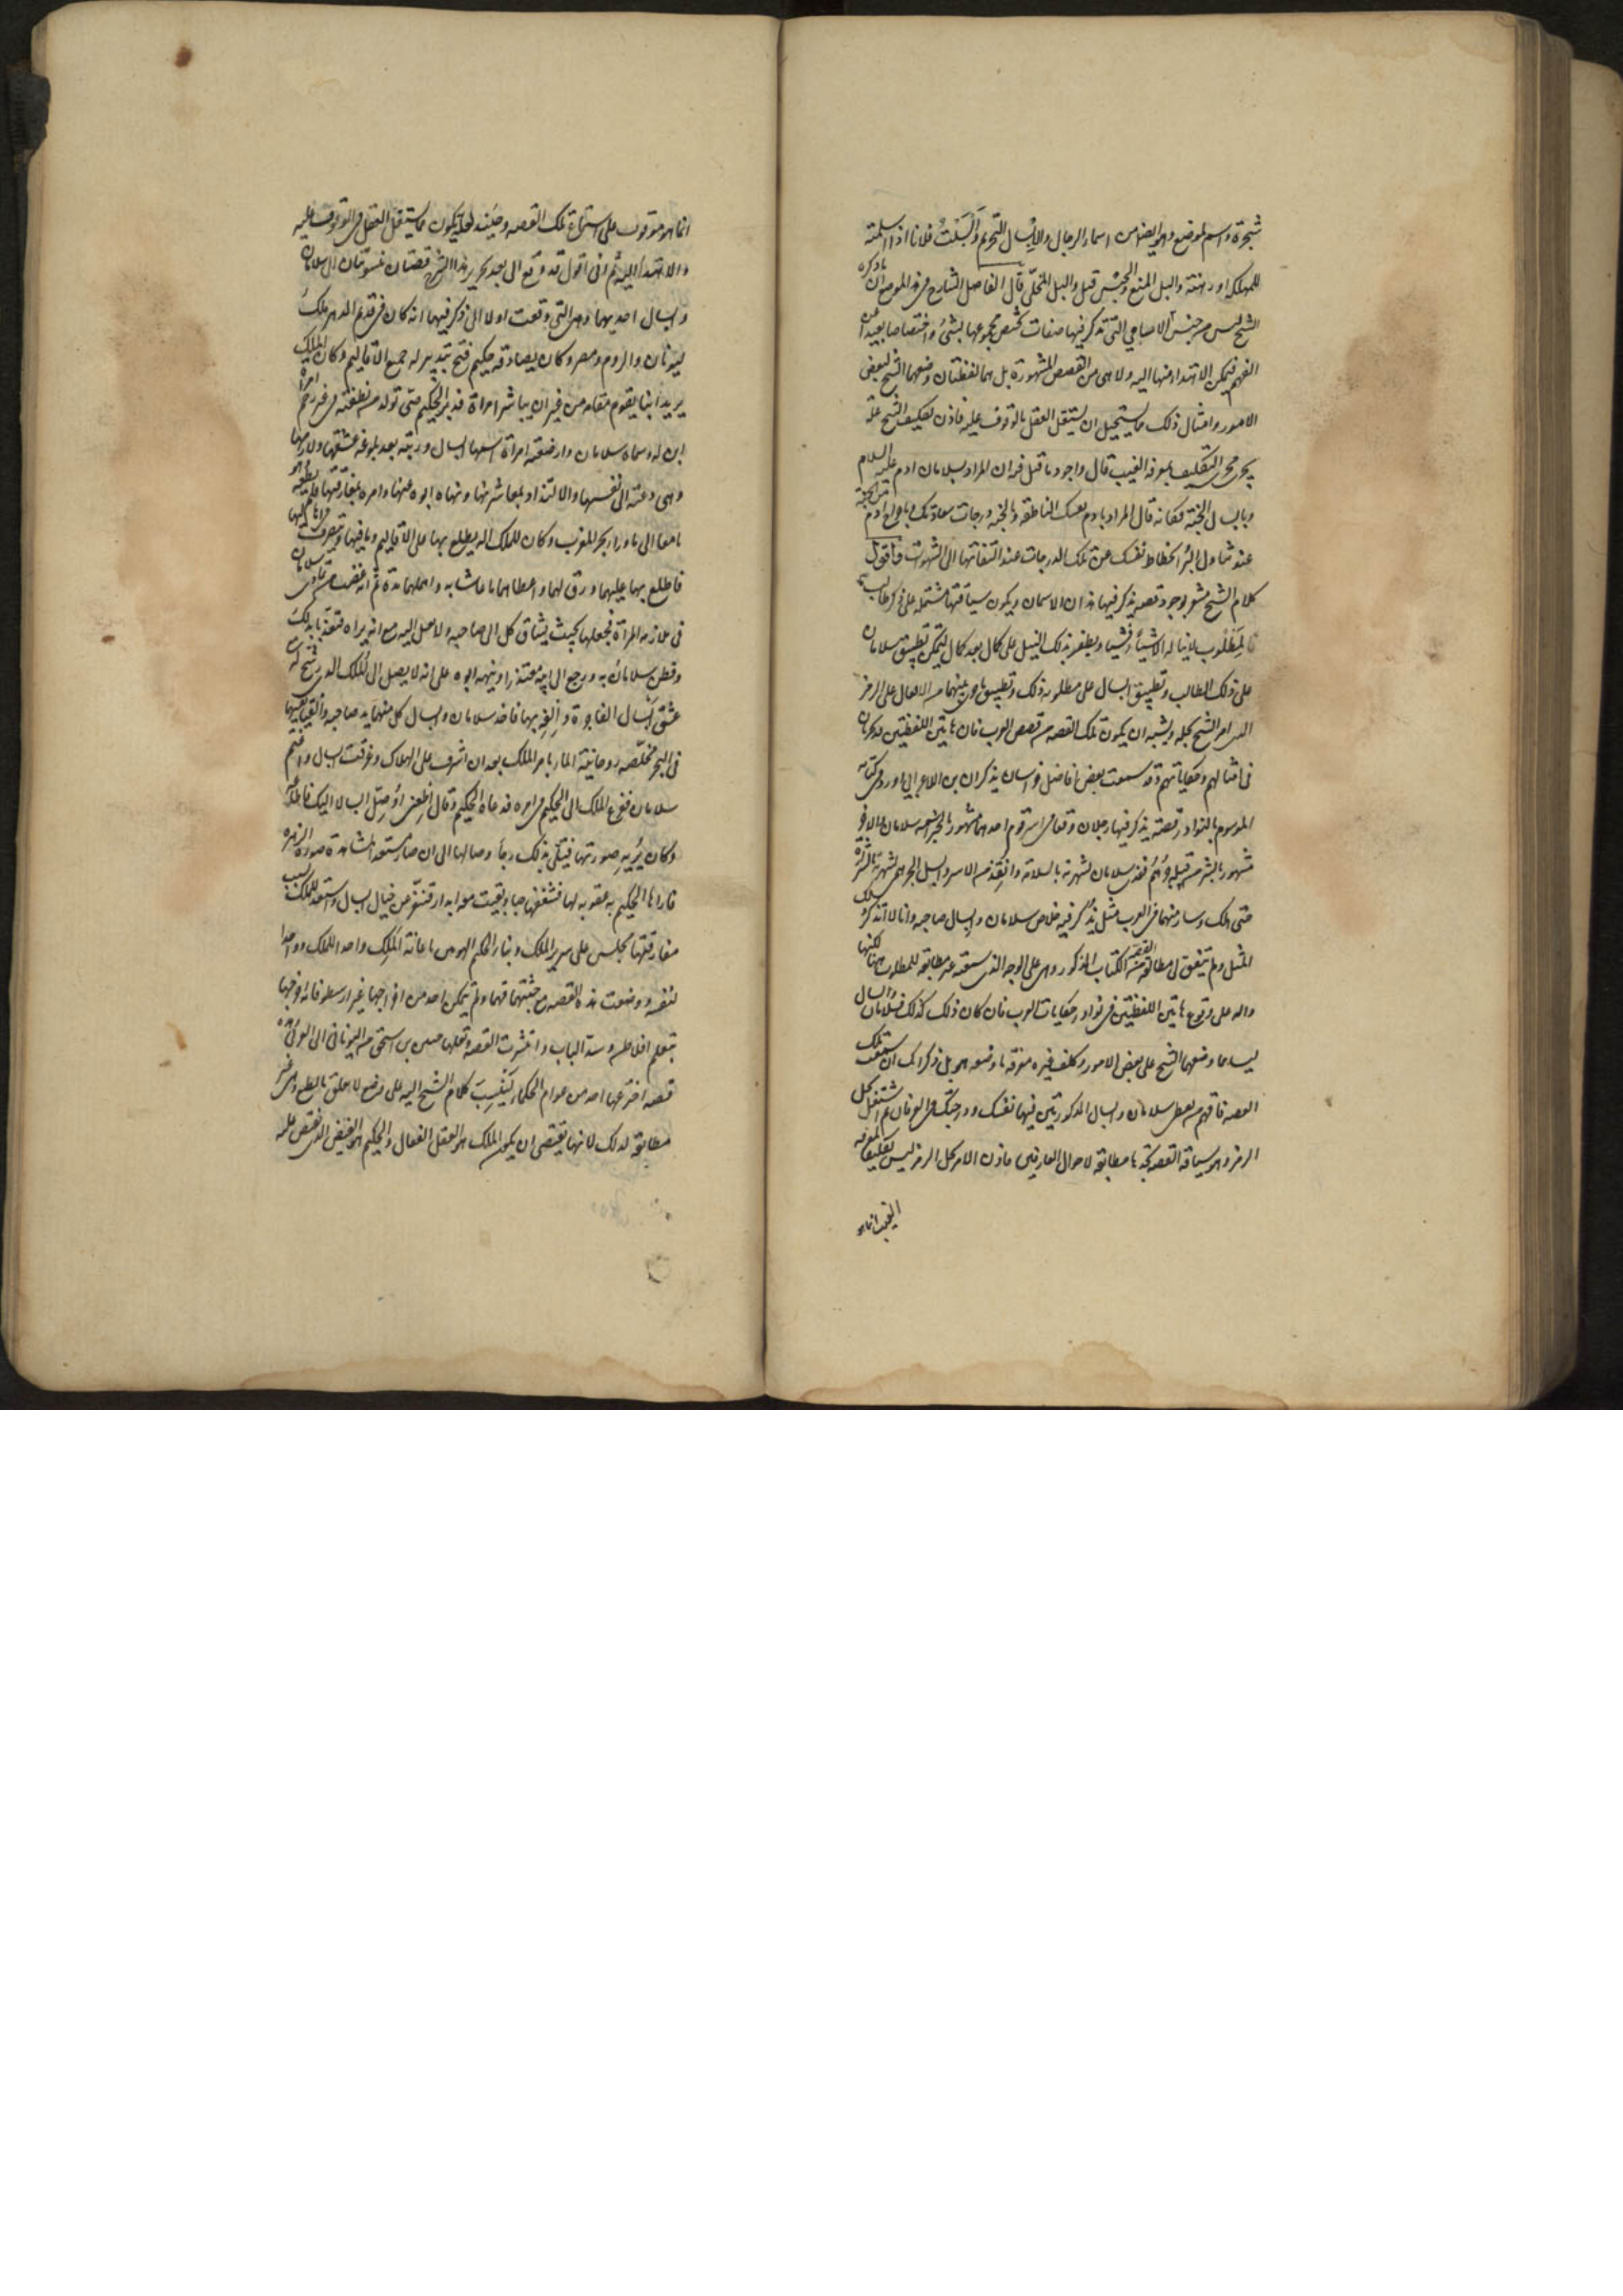 شجرة واسم لموضع وهو ايضا من اسماء الرجال والابسال التحريم وأبسلت فلانا اذا اسلمته
للهلكة او رهنته والبسل المنع والحبس قيل والبسل المخلى قال الفاضل الشارح فى هذا الموضع ان ما ذكره
الشيخ ليس من جنس الاحاجى التى تذكر فيها صفات يختص مجموعها بشئ واختصاصا بعيدا عن
الفهم فيمكن الاهتداء منها اليه ولا هى من القصص المشهورة بل هما لفظتان وضعهما الشيخ لبعض
الامور وامثال ذلك مما يستحيل ان يستقل العقل بالوقوف عليه فاذن تكليف الشيخ حله
يجرى مجرى التكليف بمعرفة الغيب قال واجود ما قيل فيه ان المراد بسلامان ادم عليه السلام
وبابسال الجنة فكانه قال المراد بادم نفسك الناطقة وبالجنة درجات سعادتك وباخراج ادم من الجنة
عند تناول البر انحطاط نفسك عن تلك الدرجات عند التفاتها الى الشهوات فاقول
كلام الشيخ مشعر بوجود قصة يذكر فيها هذان الاسمان ويكون سياقتها مشتملة على ذكر طالب ما
لمطلوب لا يناله الا شيئا فشيئا ويظفر بذلك النيل على كمال بعد كمال ليمكن تطبيق سلامان
على ذلك الطالب وتطبيق ابسال على مطلوبه ذلك وتطبيق ما جرى بينهما من الاحوال على الرمز
الذى امر الشيخ بحله ويشبه ان يكون تلك القصة من قصص العرب فان هاتين اللفظتين قد تجريان
فى امثالهم وحكاياتهم وقد سمعت بعض افاضل خراسان يذكر ان ابن الاعرابى اورد فى كتابه
الموسوم بالنوادر قصة يذكر فيها رجلان وقعا فى اسر قوم احدهما مشهور بالخير اسمه سلامان والاخر
مشهور بالشر من قبيلة جرهم ففدى سلامان لشهرته بالسلامة وانقذ من الاسر وابسل الجرهمى لشهرته بالشرارة
حتى هلك وسار منهما فى العرب مثل يذكر فيه خلاص سلامان وابسال صاحبه وانا لا اتذكر ذلك
المثل ولم يتفق لى مطالعة القصة من الكتاب المذكور وهى على الوجه الذى سمعته غير مطابقة للمطلوب ههنا لكنها
دالة على وقوع هاتين اللفظتين فى نوادر حكايات العرب فان كان ذلك كذلك فسلامان وابسال
ليسا مما وضعهما الشيخ على بعض الامور وكلف غيره معرفة ما وضعه هو بل ذكر انك ان سمعت تلك
القصة فافهم من لفظى سلامان وابسال المذكورتين فيها نفسك ودرجتك فى العرفان ثم اشتغل بحل
الرمز وهو سياقة القصة تجدها مطابقة لاحوال العارفين فاذن الامر بحل الرمز ليس تكليفا بمعرفة
الغيب انما هو
انما هو موقوف على استماع تلك القصة وحينئذ لعله يكون مما يستقل العقل فى الوقوف عليه
والاهتداء اليه ثم انى اقول قد وقع الى بعد تحرير هذا الشرح قصتان منسوبتان الى سلامان
وابسال احديهما وهى التى وقعت اولا الى ذكر فيها انه كان فى قديم الدهر ملك
ليونان والروم ومصر وكان يصادقه حكيم فتح بتدبيره له جميع الاقاليم وكان الملك
يريد ابنا يقوم مقامه من غير ان يباشر امراة فدبر الحكيم حتى تولد من نطفته فى غير رحم امراة
ابن له وسماه سلامان وارضعته امراة اسمها ابسال وربته بعد بلوغه عشقها ولازمها
وهى دعته الى نفسها والالتذاذ بمعاشرتها ونهاه ابوه عنها وامره بمفارقتها فلم يطعه وهربا
معا الى ماوراء بحر المغرب وكان للملك آلة يطلع بها على الاقاليم وما فيها ويتصرف فى اهاليها
فاطلع بها عليهما ورق لهما واعطاهما ما عاشا به واهملهما مدة ثم انه غضب من تمادى سلامان
فى ملازمة المراة فجعلهما بحيث يشتاق كل الى صاحبه ولا يصل اليه مع انه يراه فتعذبا بذلك
وفطن سلامان به ورجع الى ابيه معتذرا ونبهه ابوه على انه لا يصل الى الملك الذى رشح له مع
عشق ابسال الفاجرة والفه بها فاخذ سلامان وابسال كل منهما يد صاحبه والقيا نفسهما
فى البحر فخلصه روحانية الماء بامر الملك بعد ان اشرف على الهلاك وغرقت ابسال واغتم
سلامان ففزع الملك الى الحكيم فى امره فدعاه الحكيم وقال اطعنى اوصل ابسال اليك فاطاعه
وكان يريه صورتها فيتسلى بذلك رجاء وصالها الى ان صار مستعدا لمشاهدة صورة الزهرة
فاراها الحكيم بدعوته لها فشغفها حبا وبقيت معه ابدا فتنفر عن خيال ابسال واستعد للملك بسبب
مفارقتها فجلس على سرير الملك وبنا الحكيم الهرمين باعانة الملك واحدا للملك وواحدا
لنفسه ووضعت هذه القصة مع جثتيهما فيهما ولم يتمكن احد من اخراجها غير ارسطو فانه اخرجها
بتعليم افلاطن وسد الباب وانتشرت القصة ونقلها حنين بن اسحق من اليونانى الى العربى وهذه
قصة اخترعها احد من عوام الحكماء لينسب كلام الشيخ اليه على وضع لا يعلق بالطبع وهى غير
مطابقة لذلك لانها تقتضى ان يكون الملك هو العقل الفعال والحكيم هو الفيض الذى يفيض عليه